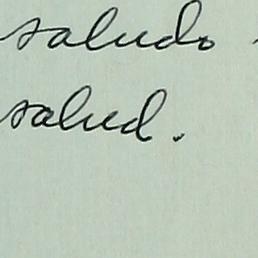 saludo
salud.